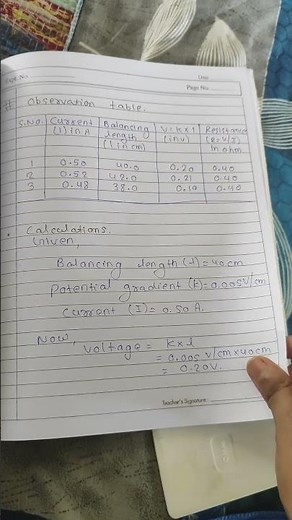 Expt. No.
Date
Page No.
# Observation table.
S.No. Current (I) in A Balancing length (l in cm) V=kxl (in V) Resistance (R=V/I) in ohm
1 0.50 40.0 0.20 0.40
2 0.52 42.0 0.21 0.40
3 0.48 38.0 0.19 0.40
• Calculations.
Given,
Balancing length (l) = 40 cm
Potential gradient (K) = 0.005 V/cm
Current (I) = 0.50 A.
Now,
Voltage = K x l
= 0.005 V/cm x 40cm
= 0.20V.
Teacher's Signature